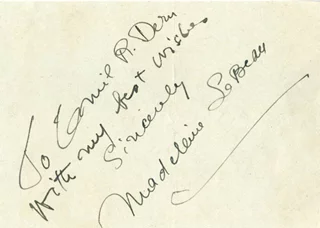 To Emil R. Dern
With my best wishes
Sincerely
Madeleine LeBeau